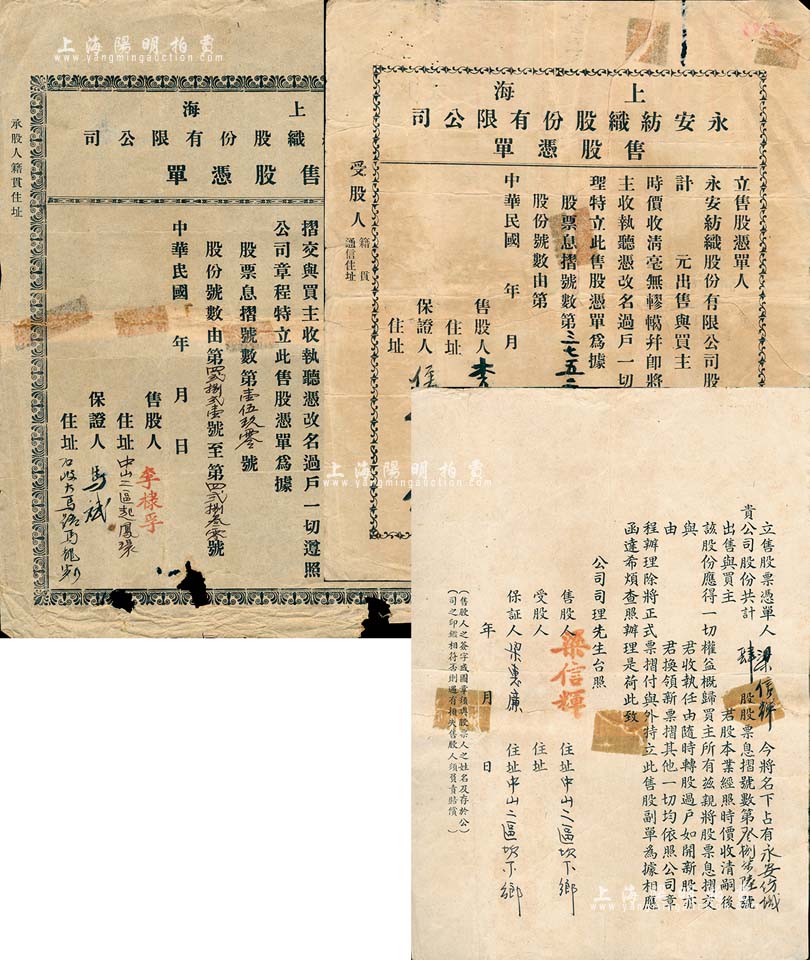 上海陽明拍賣
www.yangmingauction.com
上海
織股份有限公司
售股憑單
摺交與買主收執聽憑改名過戶一切遵照
公司章程特立此售股憑單爲據
股票息摺號數第壹伍玖零號
股份號數由第 號至第 號
中華民國 年 月 日
售股人 李棣孚
住址 中山二區起鳳環
保證人 馬斌
住址
承股人籍貫住址
上海
永安紡織股份有限公司
售股憑單
立售股憑單人
永安紡織股份有限公司股
計 元出售與買主
時價收清毫無轇轕幷卽將
主收執聽憑改名過戶一切
理特立此售股憑單爲據
股票息摺號數第三七五二
股份號數由第
中華民國 年 月
售股人 李
住址
保證人
住址
受股人 籍貫 通信住址
立售股票憑單人 梁信輝 今將名下占有永安纺织
貴公司股份共計 肆 股股票息摺號數第 號
出售與買主 君股本業經照時價收清嗣後
該股份應得一切權益概歸買主所有茲親將股票息摺交
與 君收執任由隨時轉股過戶如開新股亦
由 君換領新票摺其他一切均依照公司章
程辦理除將正式票摺付與外特立此售股副單為據相應
函達希煩查照辦理是荷此致
公司司理先生台照
售股人 梁信輝 住址 中山二區坎下鄉
受股人 住址
保証人 梁惠廣 住址 中山二區坎下鄉
年 月 日
(售股人之簽字或圖章須與股票人之姓名及存於公
司之印鑑相符否則遇有損失售股人須負責賠償)
上海陽明拍賣
www.yangmingauction.com